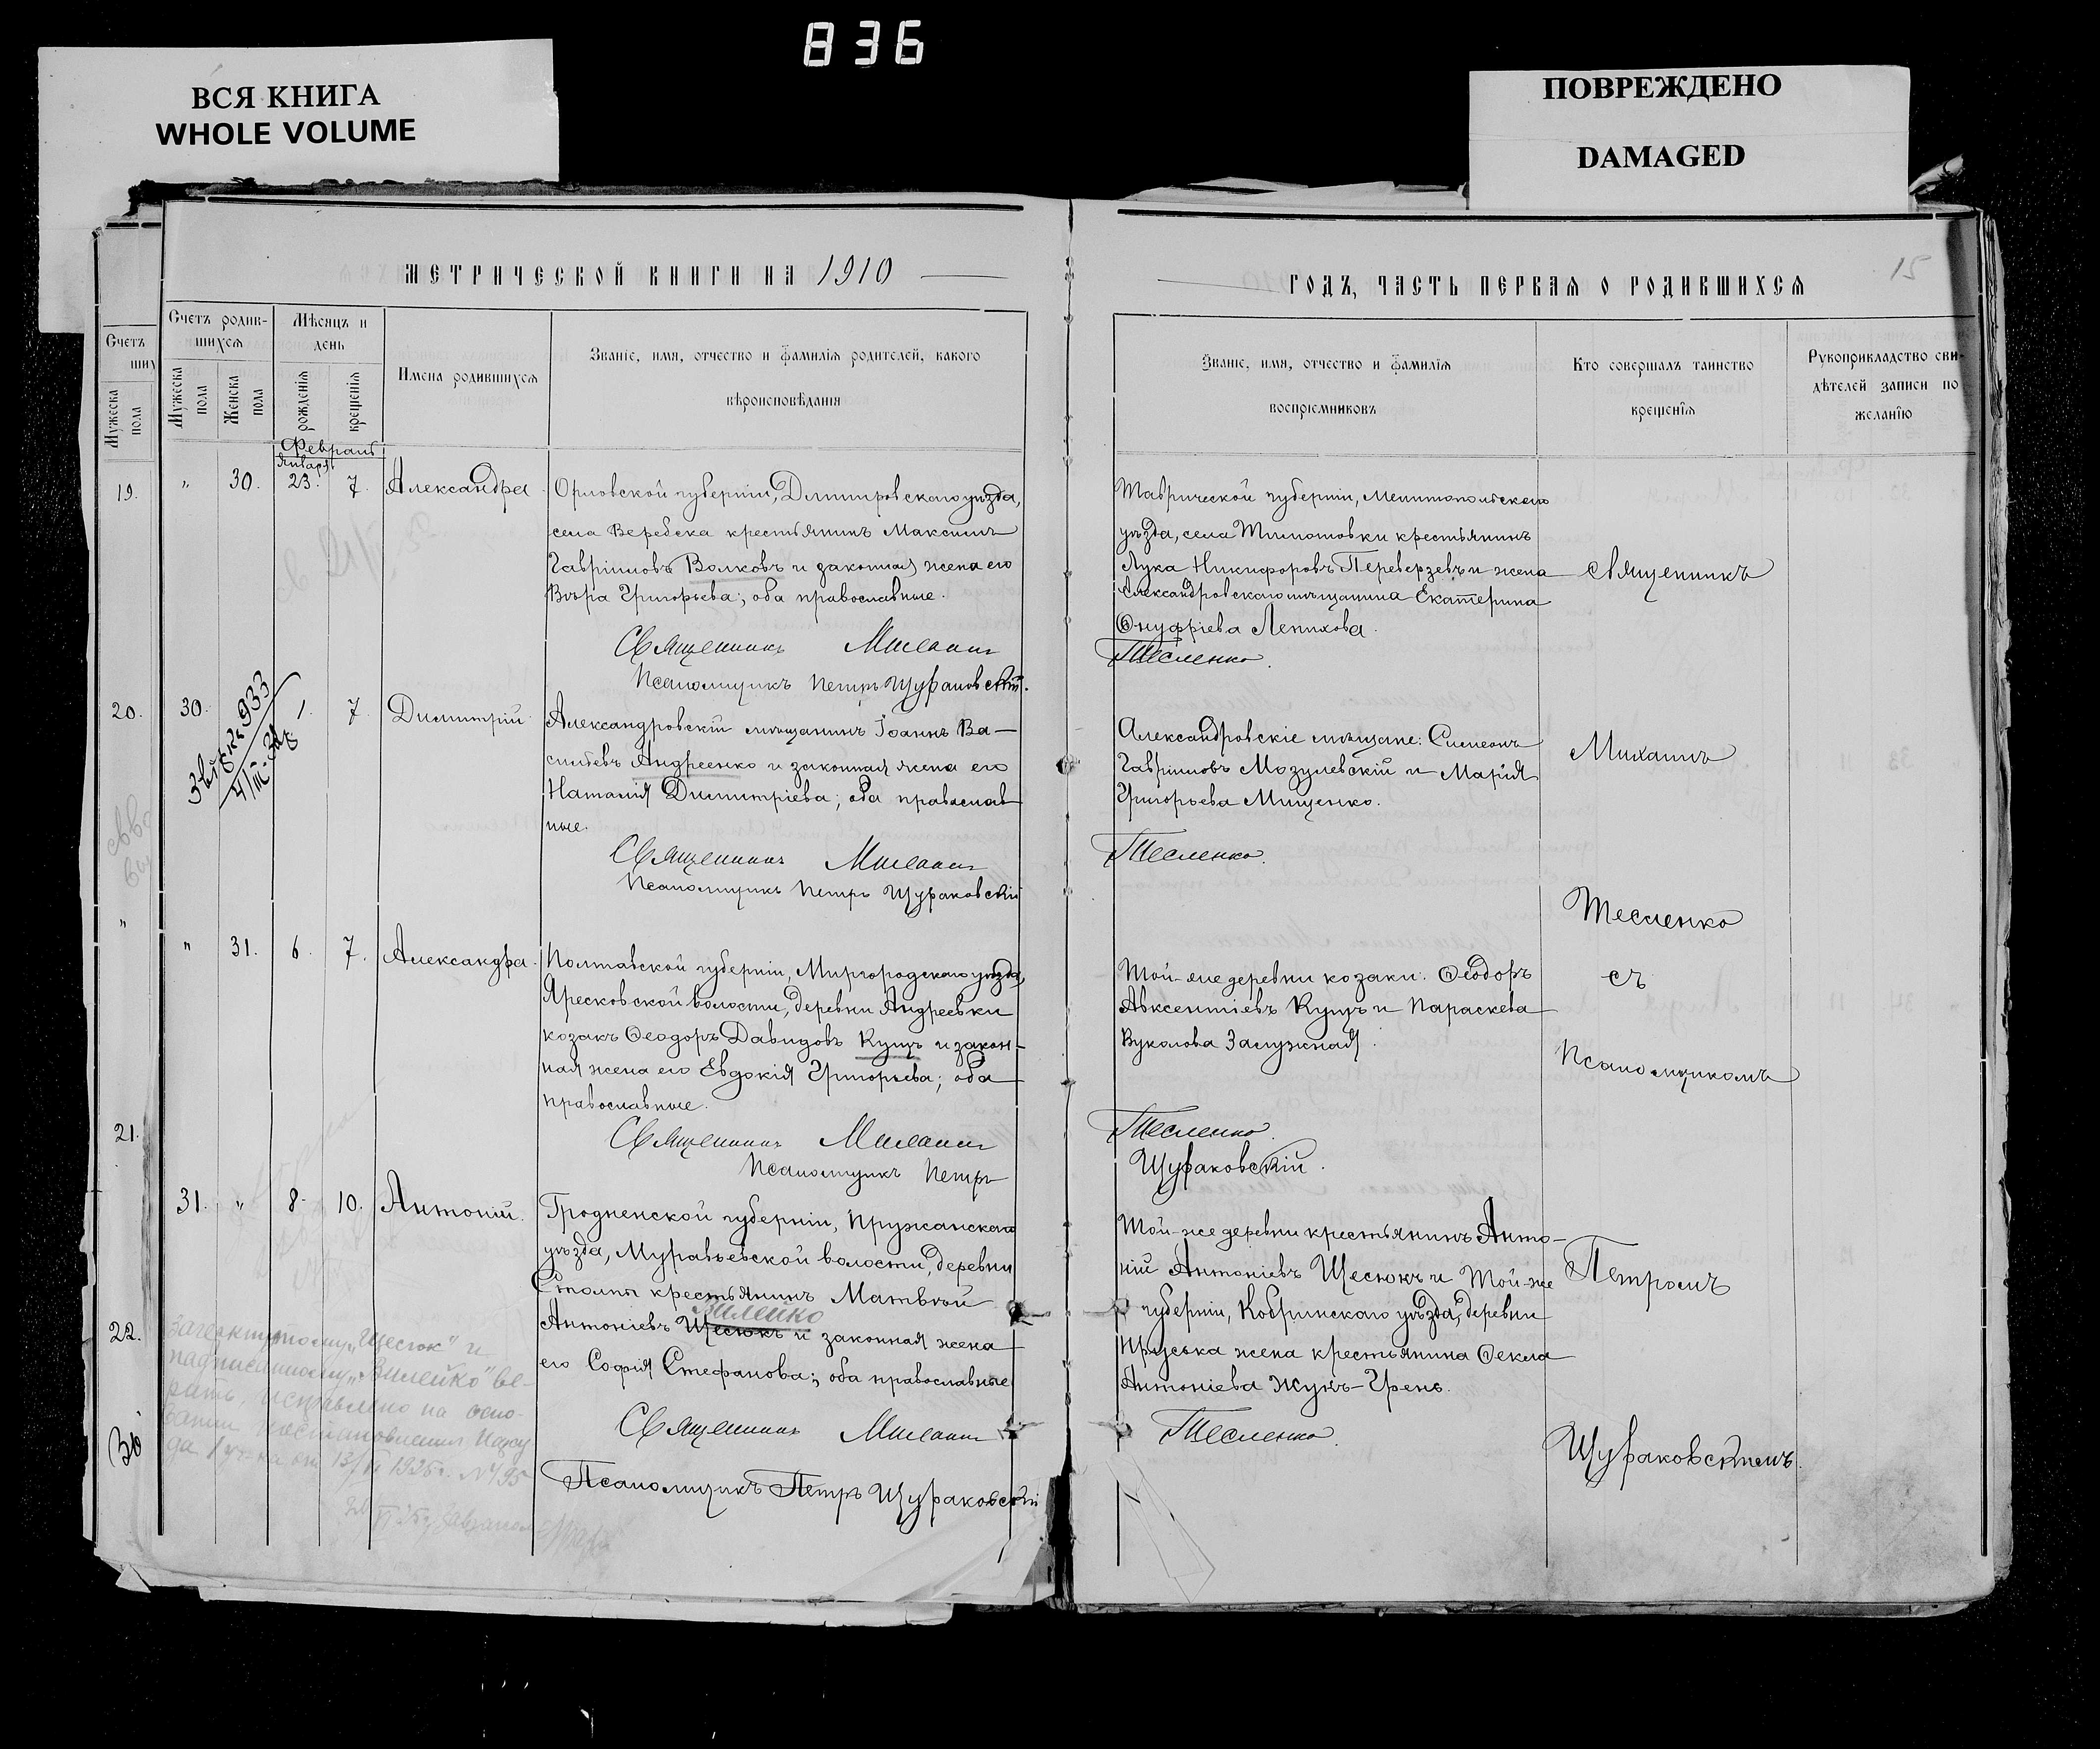 836
ВСЯ КНИГА
WHOLE VOLUME
ПОВРЕЖДЕНО
DAMAGED
МЕТРИЧЕСКОЙ КНИГИ НА 1910
ГОДЪ, ЧАСТЬ ПЕРВАЯ О РОДИВШИХСЯ
15
Счетъ
ших
Мужеска пола
Счетъ родив-
шихся
Мужеска пола
Женска пола
Мѣсяцъ и
день
рожденія
крещенія
Имена родившихся
Званіе, имя, отчество и фамилія родителей, какого
вѣроисповѣданія
Званіе, имя, отчество и фамилія
воспріемниковъ
Кто совершалъ таинство
крещенія
Рукоприкладство сви-
дѣтелей записи по
желанію
Февраль
Января
19.
" 30. 23. 7. Александра.
Орловской губерніи, Дмитровскаго уѣзда,
села Веребска крестьянинъ Максимъ
Гавріиловъ Волковъ и законная жена его
Вѣра Григорьева; оба православные.
Священникъ Михаилъ
Псаломщикъ Петръ Щураковскій.
Таврической губерніи, Мелитопольскаго
уѣзда, села Тимошовки крестьянинъ
Лука Никифоровъ Переверзевъ и жена
Александровскаго мѣщанина Екатерина
Онуфріева Лепихова.
Тесленко.
Священникъ
20.
30. 1. 7. Димитрій
933
Александровскій мѣщанинъ Іоаннъ Ва-
сильевъ Андреенко и законная жена его
Наталія Димитріева; оба православ
ные.
Священникъ Михаилъ
Псаломщикъ Петръ Щураковскій
Александровскіе мѣщане: Симеонъ
Гавріиловъ Мозулевскій и Марія
Григорьева Мищенко.
Тесленко.
Михаилъ
Тесленко
"
" 31. 6. 7. Александра.
Полтавской губерніи, Миргородскаго уѣзда,
Яресковской волости, деревни Андреевки
козакъ Ѳеодоръ Давидовъ Кущъ и закон-
ная жена его Евдокія Григорьева; оба
православные.
Священникъ Михаилъ
Псаломщикъ Петръ
Той-же деревни козаки: Ѳеодоръ
Авксентіевъ Кущъ и Параскева
Вуколова Залужная.
Тесленко.
Щураковскій.
съ
Псаломщикомъ
21.
31. " 8. 10. Антоній.
Гродненской губерніи, Пружанскаго
уѣзда, Муравьевской волости, деревни
Столпы крестьянинъ Матвѣй
Вилейко
Антоніевъ Щесюкъ и законная жена
его Софія Стефанова; оба православные
Священникъ Михаилъ
Псаломщикъ Петръ Щураковскій
Той-же деревни крестьянинъ Анто-
ній Антоніевъ Щесюкъ и Той-же
губерніи, Кобринскаго уѣзда, деревни
Пруська жена крестьянина Ѳекла
Антоніева Жукъ-Грень.
Тесленко.
Петромъ
Щураковскимъ.
22.
Зачеркнутому "Щесюк" и
надписанному "Вилейко" ве-
рить, исправлено на осно-
вании постановления